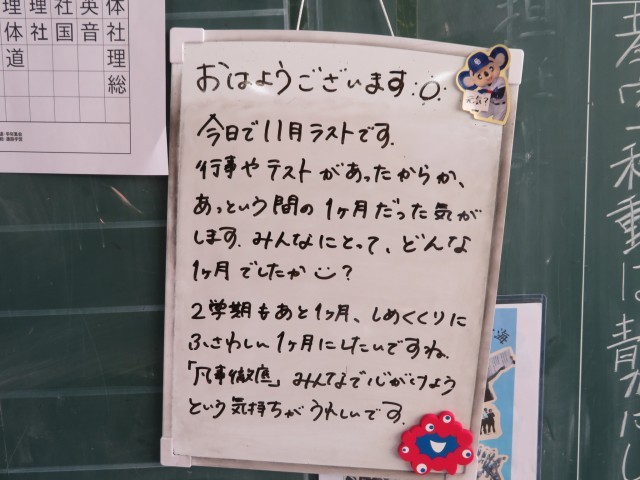 おはようございます
今日で11月ラストです.
行事やテストがあったからか、
あっという間の1ヶ月だった気が
します. みんなにとって、どんな
1ヶ月でしたか?
2学期もあと1ヶ月、しめくくりに
ふさわしい1ヶ月にしたいですね.
「凡事徹底」みんなで心がけよう
という気持ちがうれしいです.
元気?
理 社 社 英 体
体 理 国 音 社
道 理
総